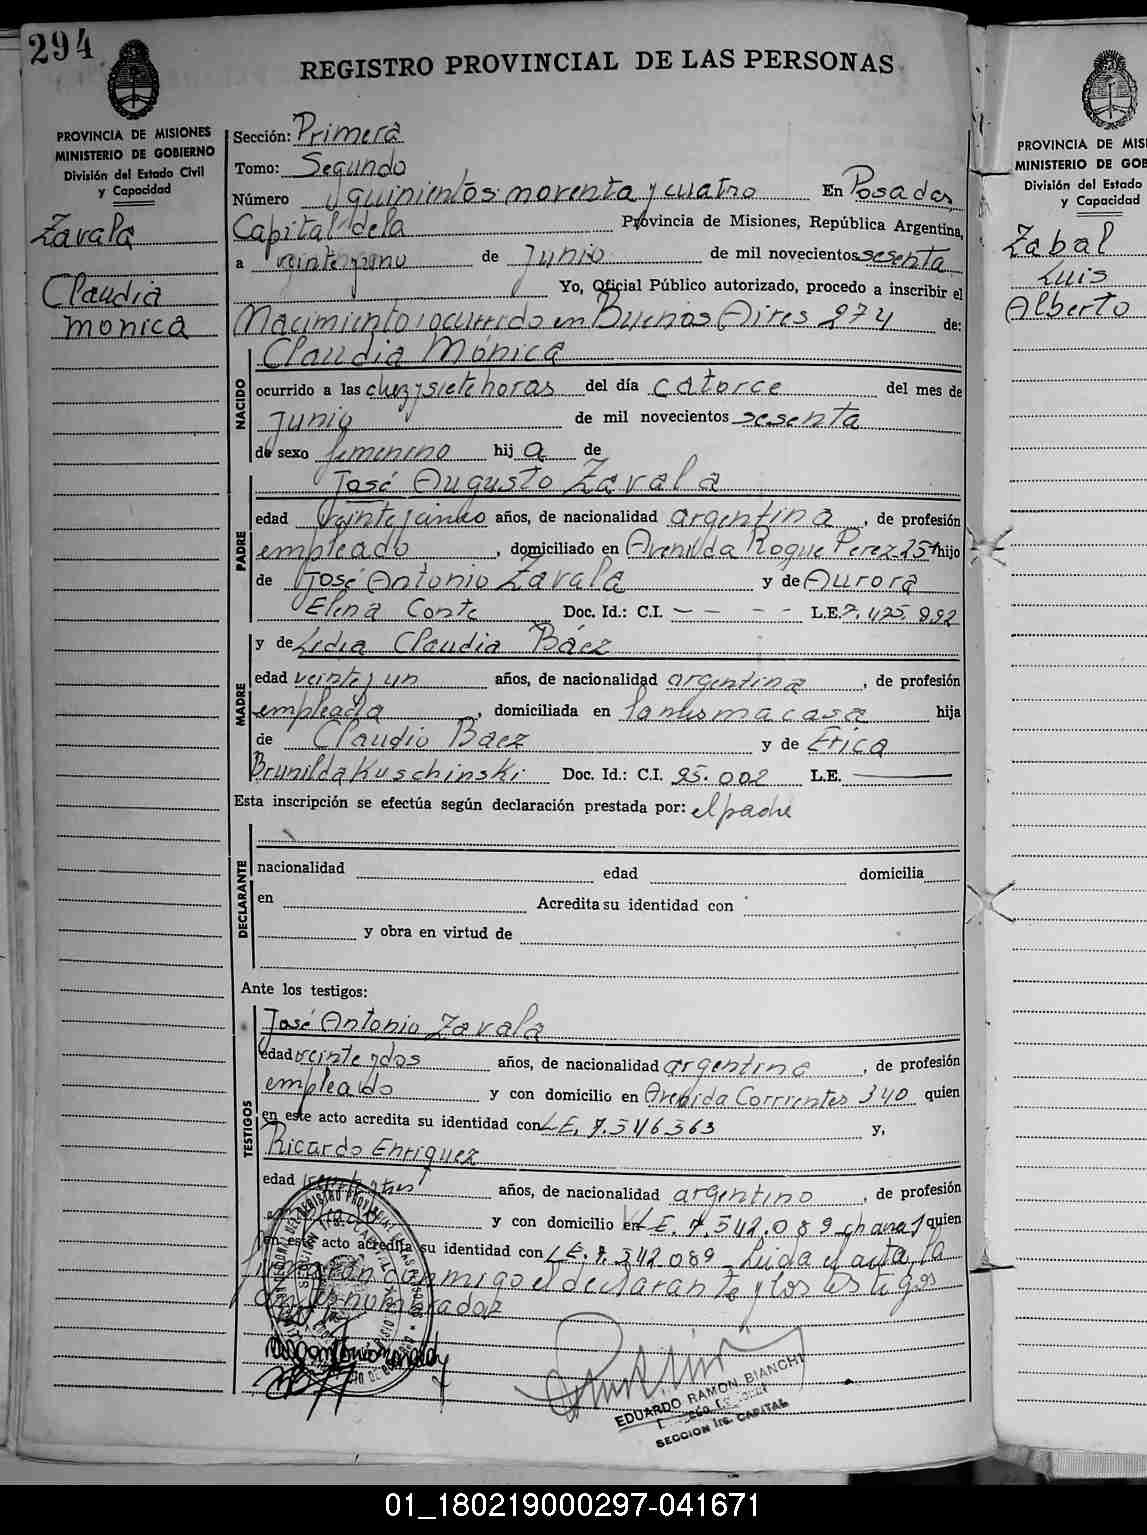 294
REGISTRO PROVINCIAL DE LAS PERSONAS
PROVINCIA DE MISIONES
MINISTERIO DE GOBIERNO
División del Estado Civil
y Capacidad
Zavala
Claudia
Monica
Sección: Primera
Tomo: Segundo
Número quinientos noventa y cuatro En Posadas,
Capital de la Provincia de Misiones, República Argentina,
a veinte y uno de Junio de mil novecientos sesenta
Yo, Oficial Público autorizado, procedo a inscribir el
Nacimiento ocurrido en Buenos Aires 274 de:
NACIDO
Claudia Mónica
ocurrido a las diez y siete horas del día catorce del mes de
Junio de mil novecientos sesenta
de sexo femenino hij a de
José Augusto Zavala
PADRE
edad veinte y cinco años, de nacionalidad argentina, de profesión
empleado, domiciliado en Avenida Roque Perez hijo
de José Antonio Zavala y de Aurora
Elena Conte Doc. Id.: C.I. - - - - L.E.
y de Lidia Claudia Báez
MADRE
edad veinte y un años, de nacionalidad argentina, de profesión
empleada, domiciliada en la misma casa hija
de Claudio Baez y de Erica
Brunilda Kuschinski Doc. Id.: C.I. 95.002 L.E.
Esta inscripción se efectúa según declaración prestada por: el padre
DECLARANTE
nacionalidad edad domicilia
en Acredita su identidad con
y obra en virtud de
Ante los testigos:
TESTIGOS
José Antonio Zavala
edad veinte y dos años, de nacionalidad argentino, de profesión
empleado y con domicilio en Avenida Corrientes 340 quien
en este acto acredita su identidad con L.E. 7.546363 y,
Ricardo Enriquez
edad años, de nacionalidad argentino, de profesión
y con domicilio en L.E. 7.542.089 quien
en este acto acredita su identidad con L.E. 7.542089 Leida el acta, la
firmaran conmigo el declarante y los testigos
EDUARDO RAMON BIANCHI
SECCION 1ra. CAPITAL
PROVINCIA DE MIS
MINISTERIO DE GOB
División del Estado
y Capacidad
Zabal
Luis
Alberto
01_180219000297-041671